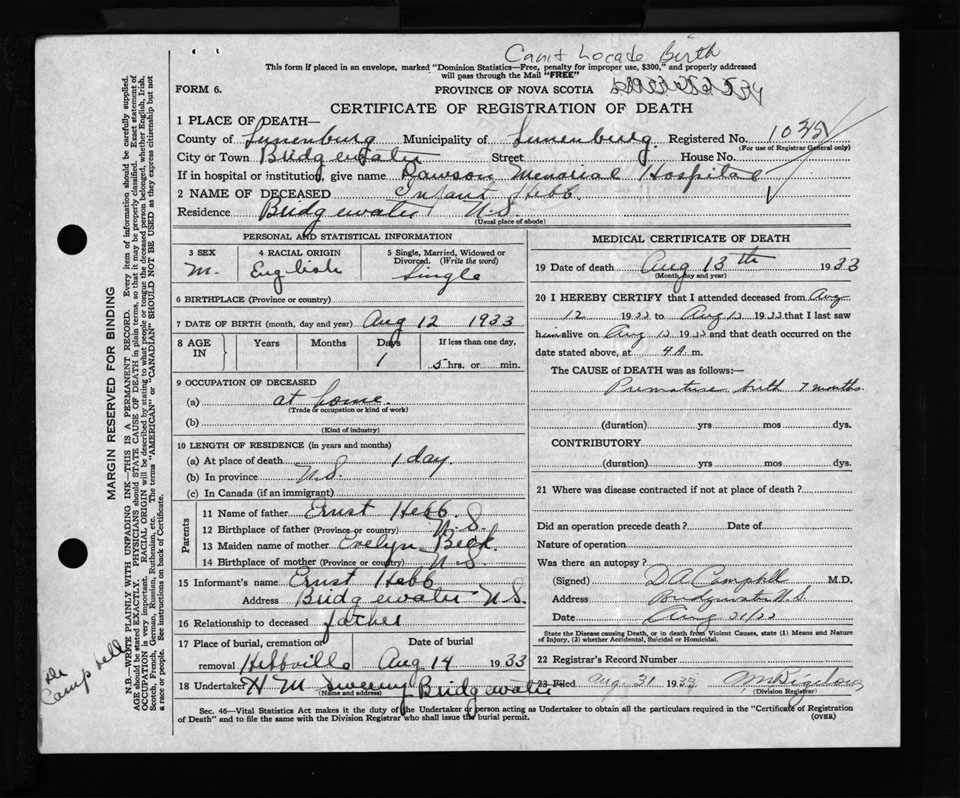 Cannot Locate Birth
This form if placed in an envelope, marked "Dominion Statistics—Free, penalty for improper use, $300," and properly addressed
will pass through the Mail "FREE"
FORM 6.
PROVINCE OF NOVA SCOTIA
CERTIFICATE OF REGISTRATION OF DEATH
1 PLACE OF DEATH—
County of Lunenburg Municipality of Lunenburg Registered No.
(For use of Registrar General only)
City or Town Bridgewater Street House No.
If in hospital or institution, give name Dawson Memorial Hospital
2 NAME OF DECEASED Infant Hebb.
Residence Bridgewater N.S.
(Usual place of abode)
PERSONAL AND STATISTICAL INFORMATION
3 SEX M.
4 RACIAL ORIGIN English
5 Single, Married, Widowed or Divorced. (Write the word) Single
6 BIRTHPLACE (Province or country)
7 DATE OF BIRTH (month, day and year) Aug 12 1933
8 AGE IN Years Months Days 1 If less than one day, 5 hrs. or min.
9 OCCUPATION OF DECEASED
(a) at home.
(Trade or occupation or kind of work)
(b)
(Kind of industry)
10 LENGTH OF RESIDENCE (in years and months)
(a) At place of death 1 day.
(b) In province N.S.
(c) In Canada (if an immigrant)
Parents
11 Name of father Ernst Hebb.
12 Birthplace of father (Province or country) N.S.
13 Maiden name of mother Evelyn Beck.
14 Birthplace of mother (Province or country) N.S.
15 Informant's name Ernst Hebb
Address Bridgewater N.S.
16 Relationship to deceased father
17 Place of burial, cremation or removal Hebbville
Date of burial Aug 14 1933
18 Undertaker H M Sweeny Bridgewater
(Name and address)
MEDICAL CERTIFICATE OF DEATH
19 Date of death Aug 13th 1933
(Month, day and year)
20 I HEREBY CERTIFY that I attended deceased from Aug
12 1933 to Aug 13 1933 that I last saw
him alive on Aug 13 1933 and that death occurred on
date stated above, at 4 A. m.
The CAUSE of DEATH was as follows:—
Premature birth 7 months.
(duration) yrs mos dys.
CONTRIBUTORY
(duration) yrs mos dys.
21 Where was disease contracted if not at place of death?
Did an operation precede death? Date of
Nature of operation
Was there an autopsy?
(Signed) D A Campbell M.D.
Address Bridgewater N.S.
Date Aug 31/33
State the Disease causing Death, or in death from Violent Causes, state (1) Means and Nature of Injury, (2) whether Accidental, Suicidal or Homicidal.
22 Registrar's Record Number
23 Filed Aug. 31 1933
(Division Registrar)
Sec. 46—Vital Statistics Act makes it the duty of the Undertaker or person acting as Undertaker to obtain all the particulars required in the "Certificate of Registration
of Death" and to file the same with the Division Registrar who shall issue the burial permit.
(OVER)
MARGIN RESERVED FOR BINDING
N.B.—WRITE PLAINLY WITH UNFADING INK—THIS IS A PERMANENT RECORD. Every item of information should be carefully supplied.
AGE should be stated EXACTLY. PHYSICIANS should STATE CAUSE OF DEATH in plain terms, so that it may be properly classified. Exact statement of
OCCUPATION is very important. RACIAL ORIGIN will be described by stating to what people or tongue the deceased person belonged, whether English, Irish,
Scotch, French, German, Russian, Ruthenian, etc. The terms "AMERICAN" or "CANADIAN" SHOULD NOT BE USED as they express citizenship but not
a race or people. See instructions on back of Certificate.
Campbell